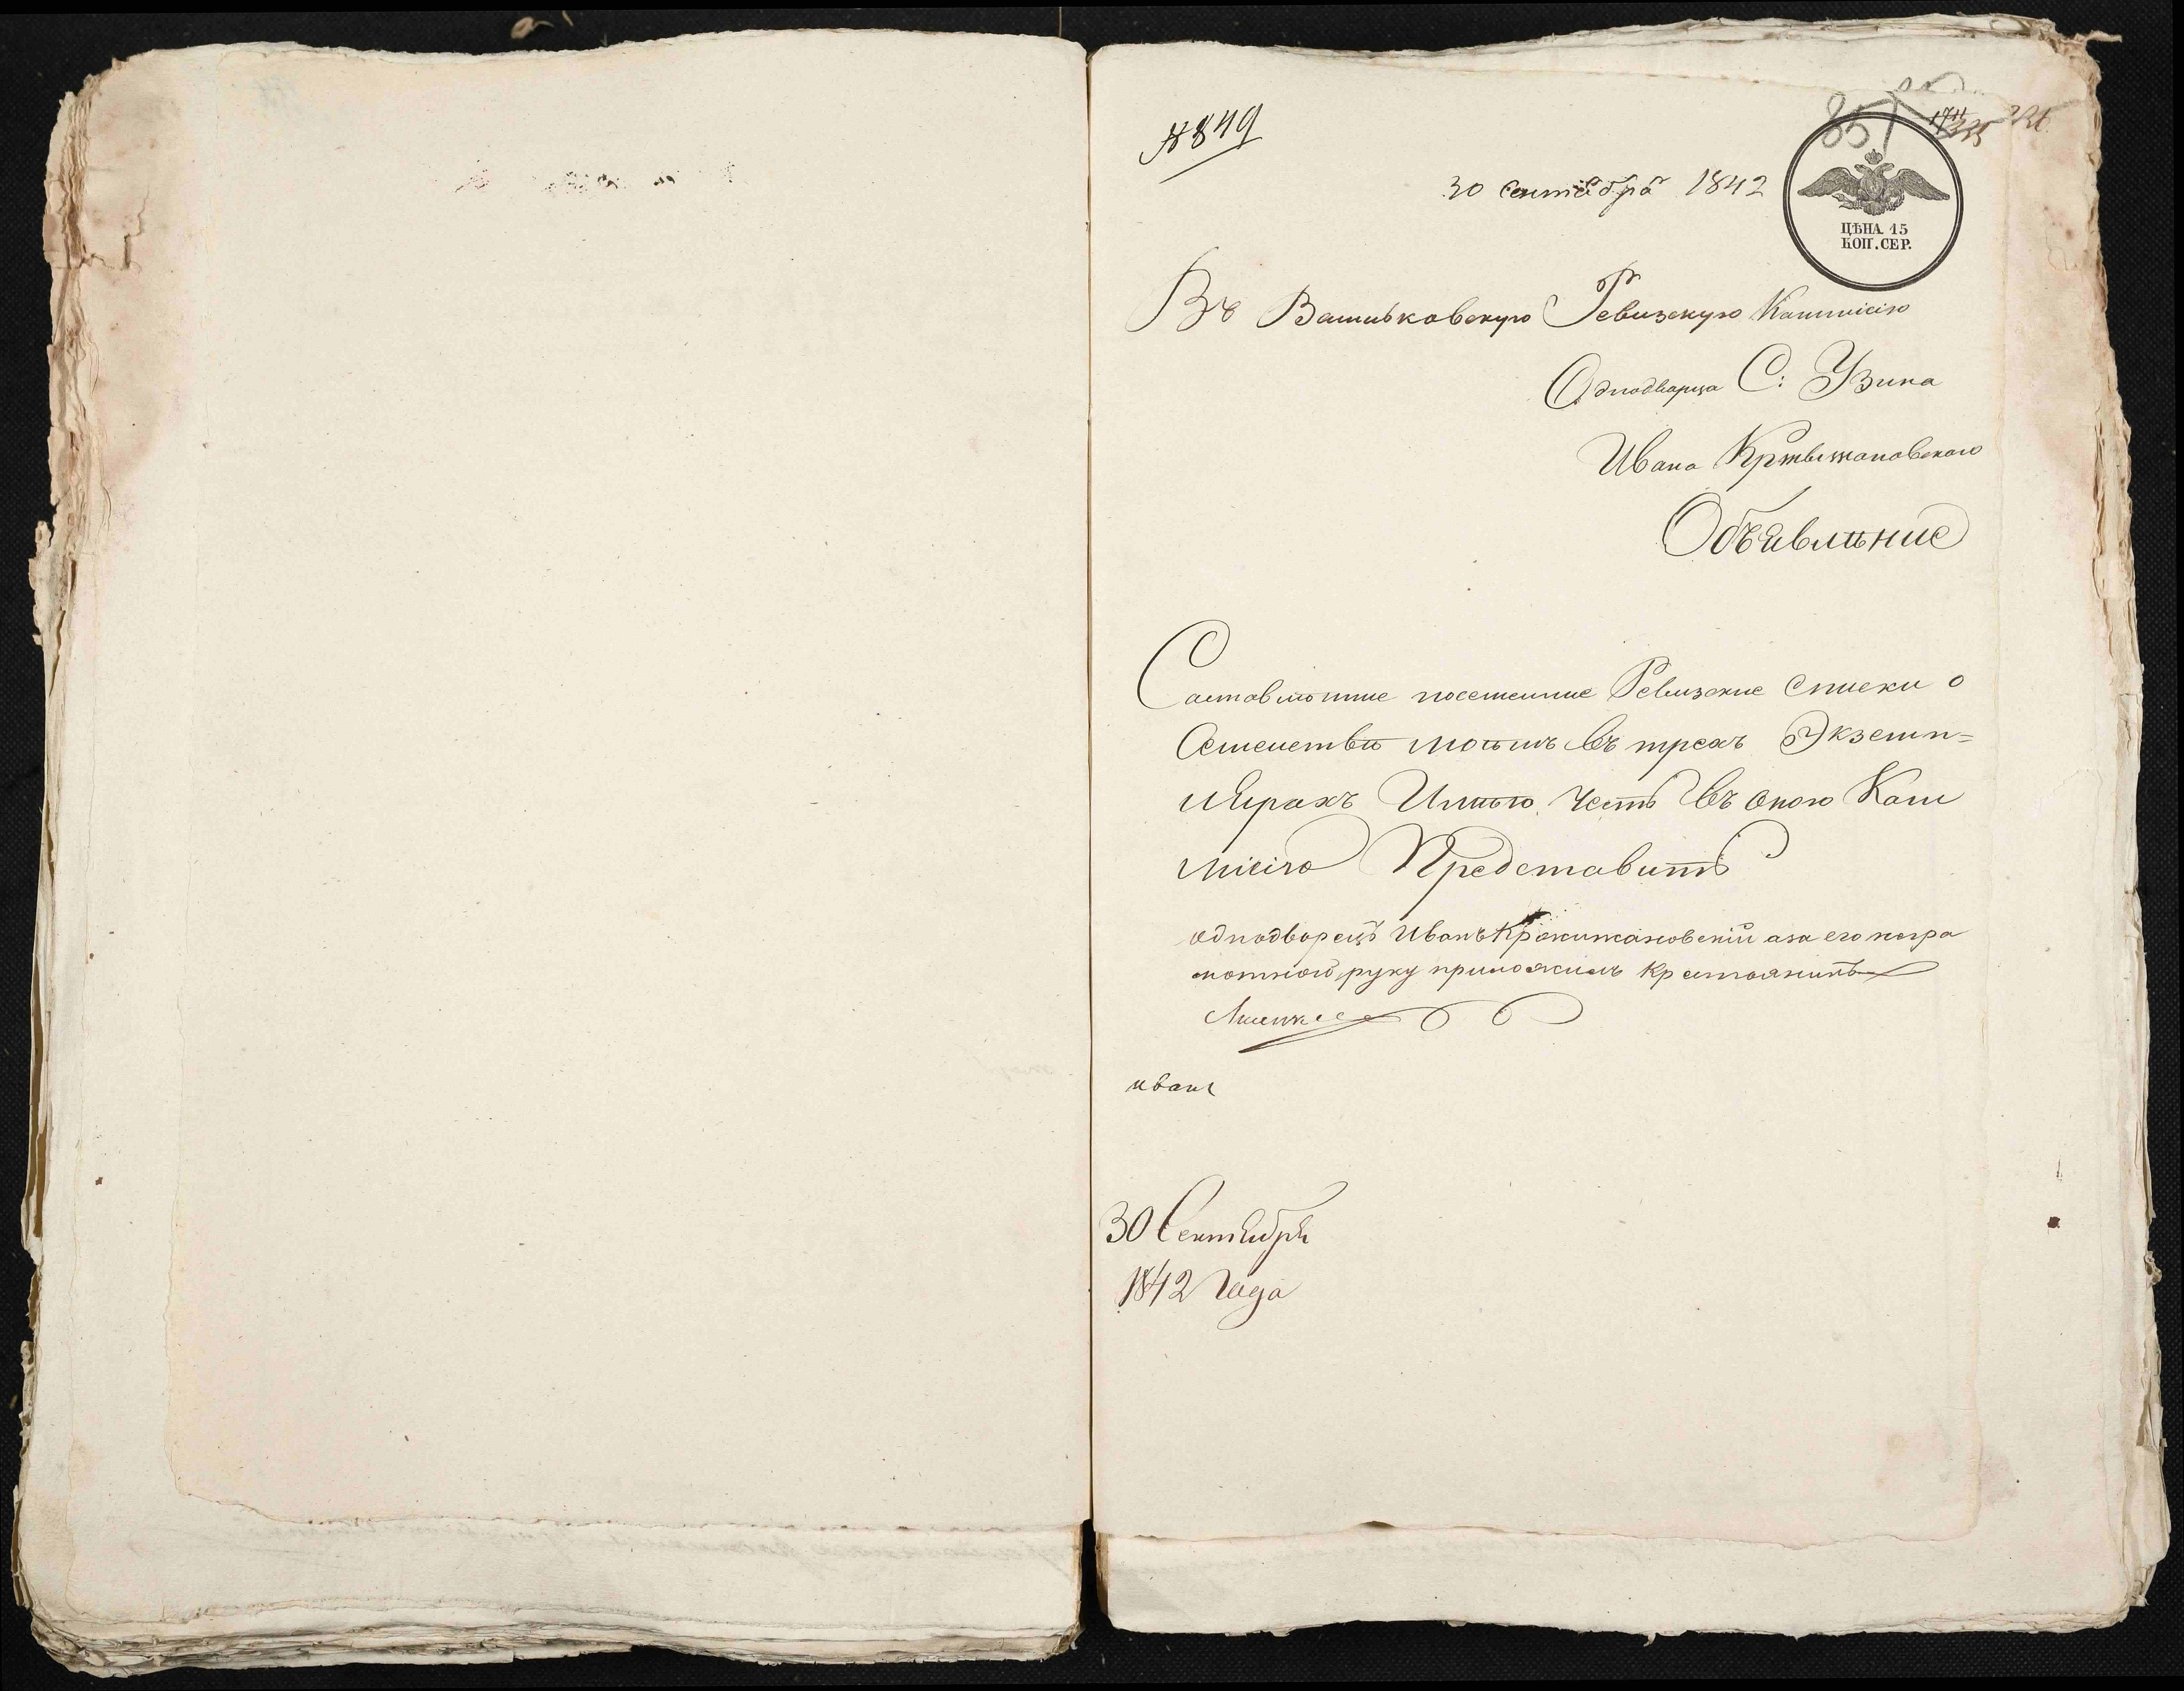 № 849
857
30 сентября 1842
ЦѢНА 15
КОП. СЕР.
Въ Васильковскую Ревизскую Коммисію
Однодворца С: Узина
Ивана Кржыжановского
Объявленіе
Составленные посемейные Ревизские списки о
Семействе моемъ въ трехъ Экземп=
лярахъ Имею Честь въ оною Ком
мисію Представить
однодворецъ Иванъ Кржижановскій а за его негра
мотного руку приложилъ крестьянинъ
иванъ
30 Сентября
1842 года